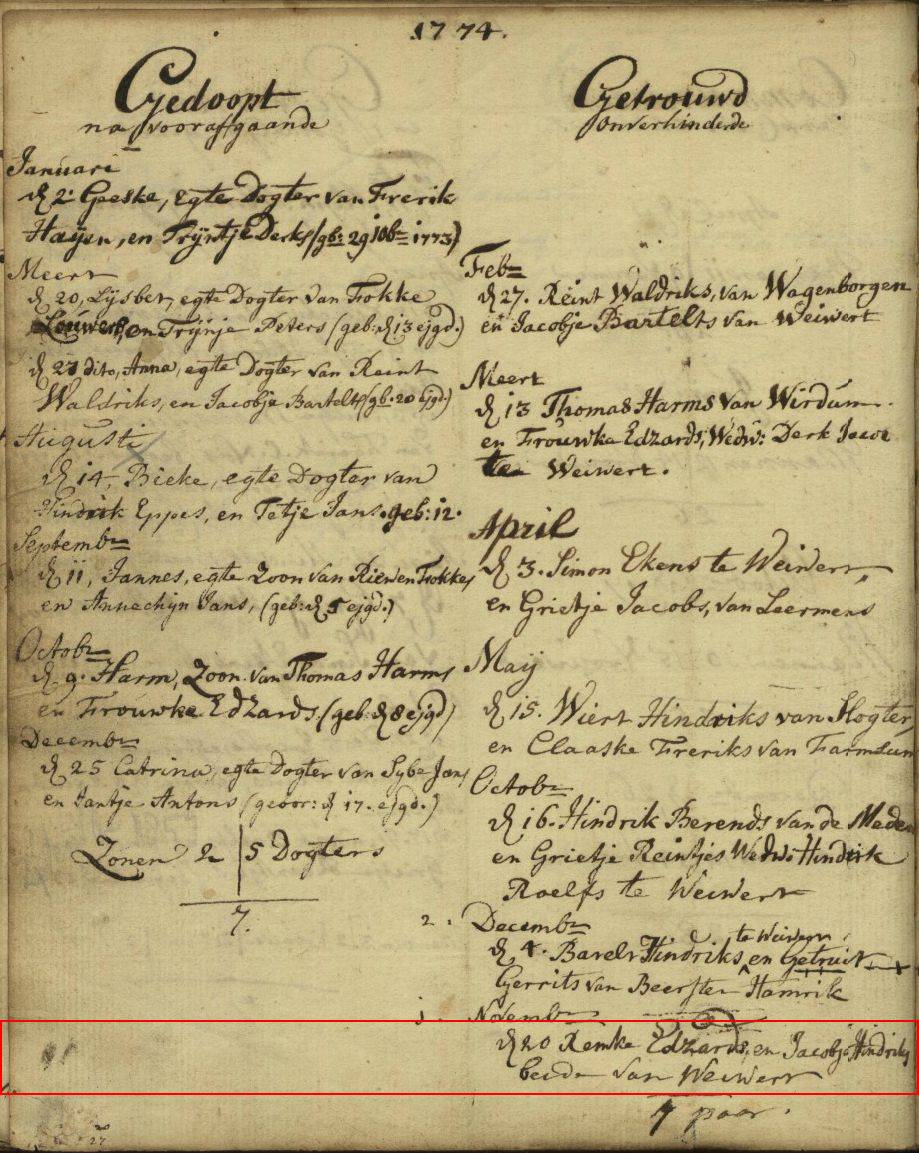 1774.
Gedoopt
na voorafgaande
Januari
d 2. Geeske, egte Dogter van Frerik
Hayen, en Trijntje Derks (gb: 29 10br 1773)
Meert
d 20, Lijsbet, egte Dogter van Fokke
Louwerts, en Trijnje Peters (geb: d 13 ejgd.)
d 27 dito, Anna, egte Dogter van Reint
Waldriks, en Jacobje Bartelts (gb. 20 ejgd.)
Augusti
d 14, Bieke, egte Dogter van
Hindrik Eppes, en Tetje Jans. geb: 12.
Septembr
d 11, Jannes, egte Zoon van Riewen Fokkes
en Annechijn Jans, (geb: d 5 ejgd.)
Octobr
d 9. Harm, Zoon van Thomas Harms
en Frouwke Edzards (geb. d 8 ejgd)
Decembr
d 25 Catrina, egte Dogter van Sybe Jans
en Jantje Antons (geoor: d 17. ejgd.)
Zonen 2 | 5 Dogters
7.
Getrouwd
onverhinderde
Febr
d 27. Reint Waldriks, van Wagenborgen
en Jacobje Bartelts van Weiwert
Meert
d 13 Thomas Harms van Wirdum.
en Frouwke Edzards, Wedw: Derk Jacobs
te Weiwert.
April
d 3. Simon Ekens te Weiwert,
en Grietje Jacobs, van Leermens
May
d 15. Wiert Hindriks van Hogter,
en Claaske Freriks van Farmsum
Octobr
d 16. Hindrik Berends van de Meden
en Grietje Reintjes Wedw: Hindrik
Roelfs te Weiwert
2. Decembr
d 4. Barelt Hindriks te Weiwert, en Getruit
Gerrits van Beerster Hamrik
1. Novembr
d 20 Remke Edzards, en Jacobje Hindriks
beide van Weiwert
7 paar.
27